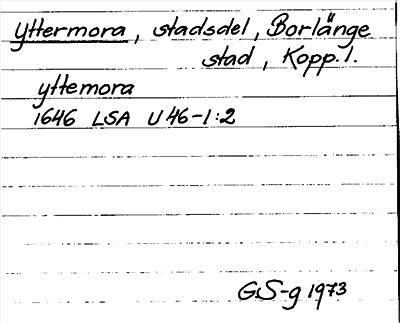 Yttermora, stadsdel, Borlänge
stad, Kopp. l.
yttemora
1646 LSA U 46-1:2
GS-g 1973